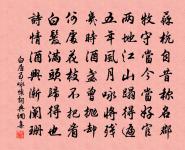 蘇杭自昔稱名郡
牧守當今當好官
兩地江山蹋得遍
五年風月詠將殘
幾時酒盞曾拋卻
何處花枝不把看
白髮滿頭歸得也
詩情酒興漸闌珊
白居易詠懷